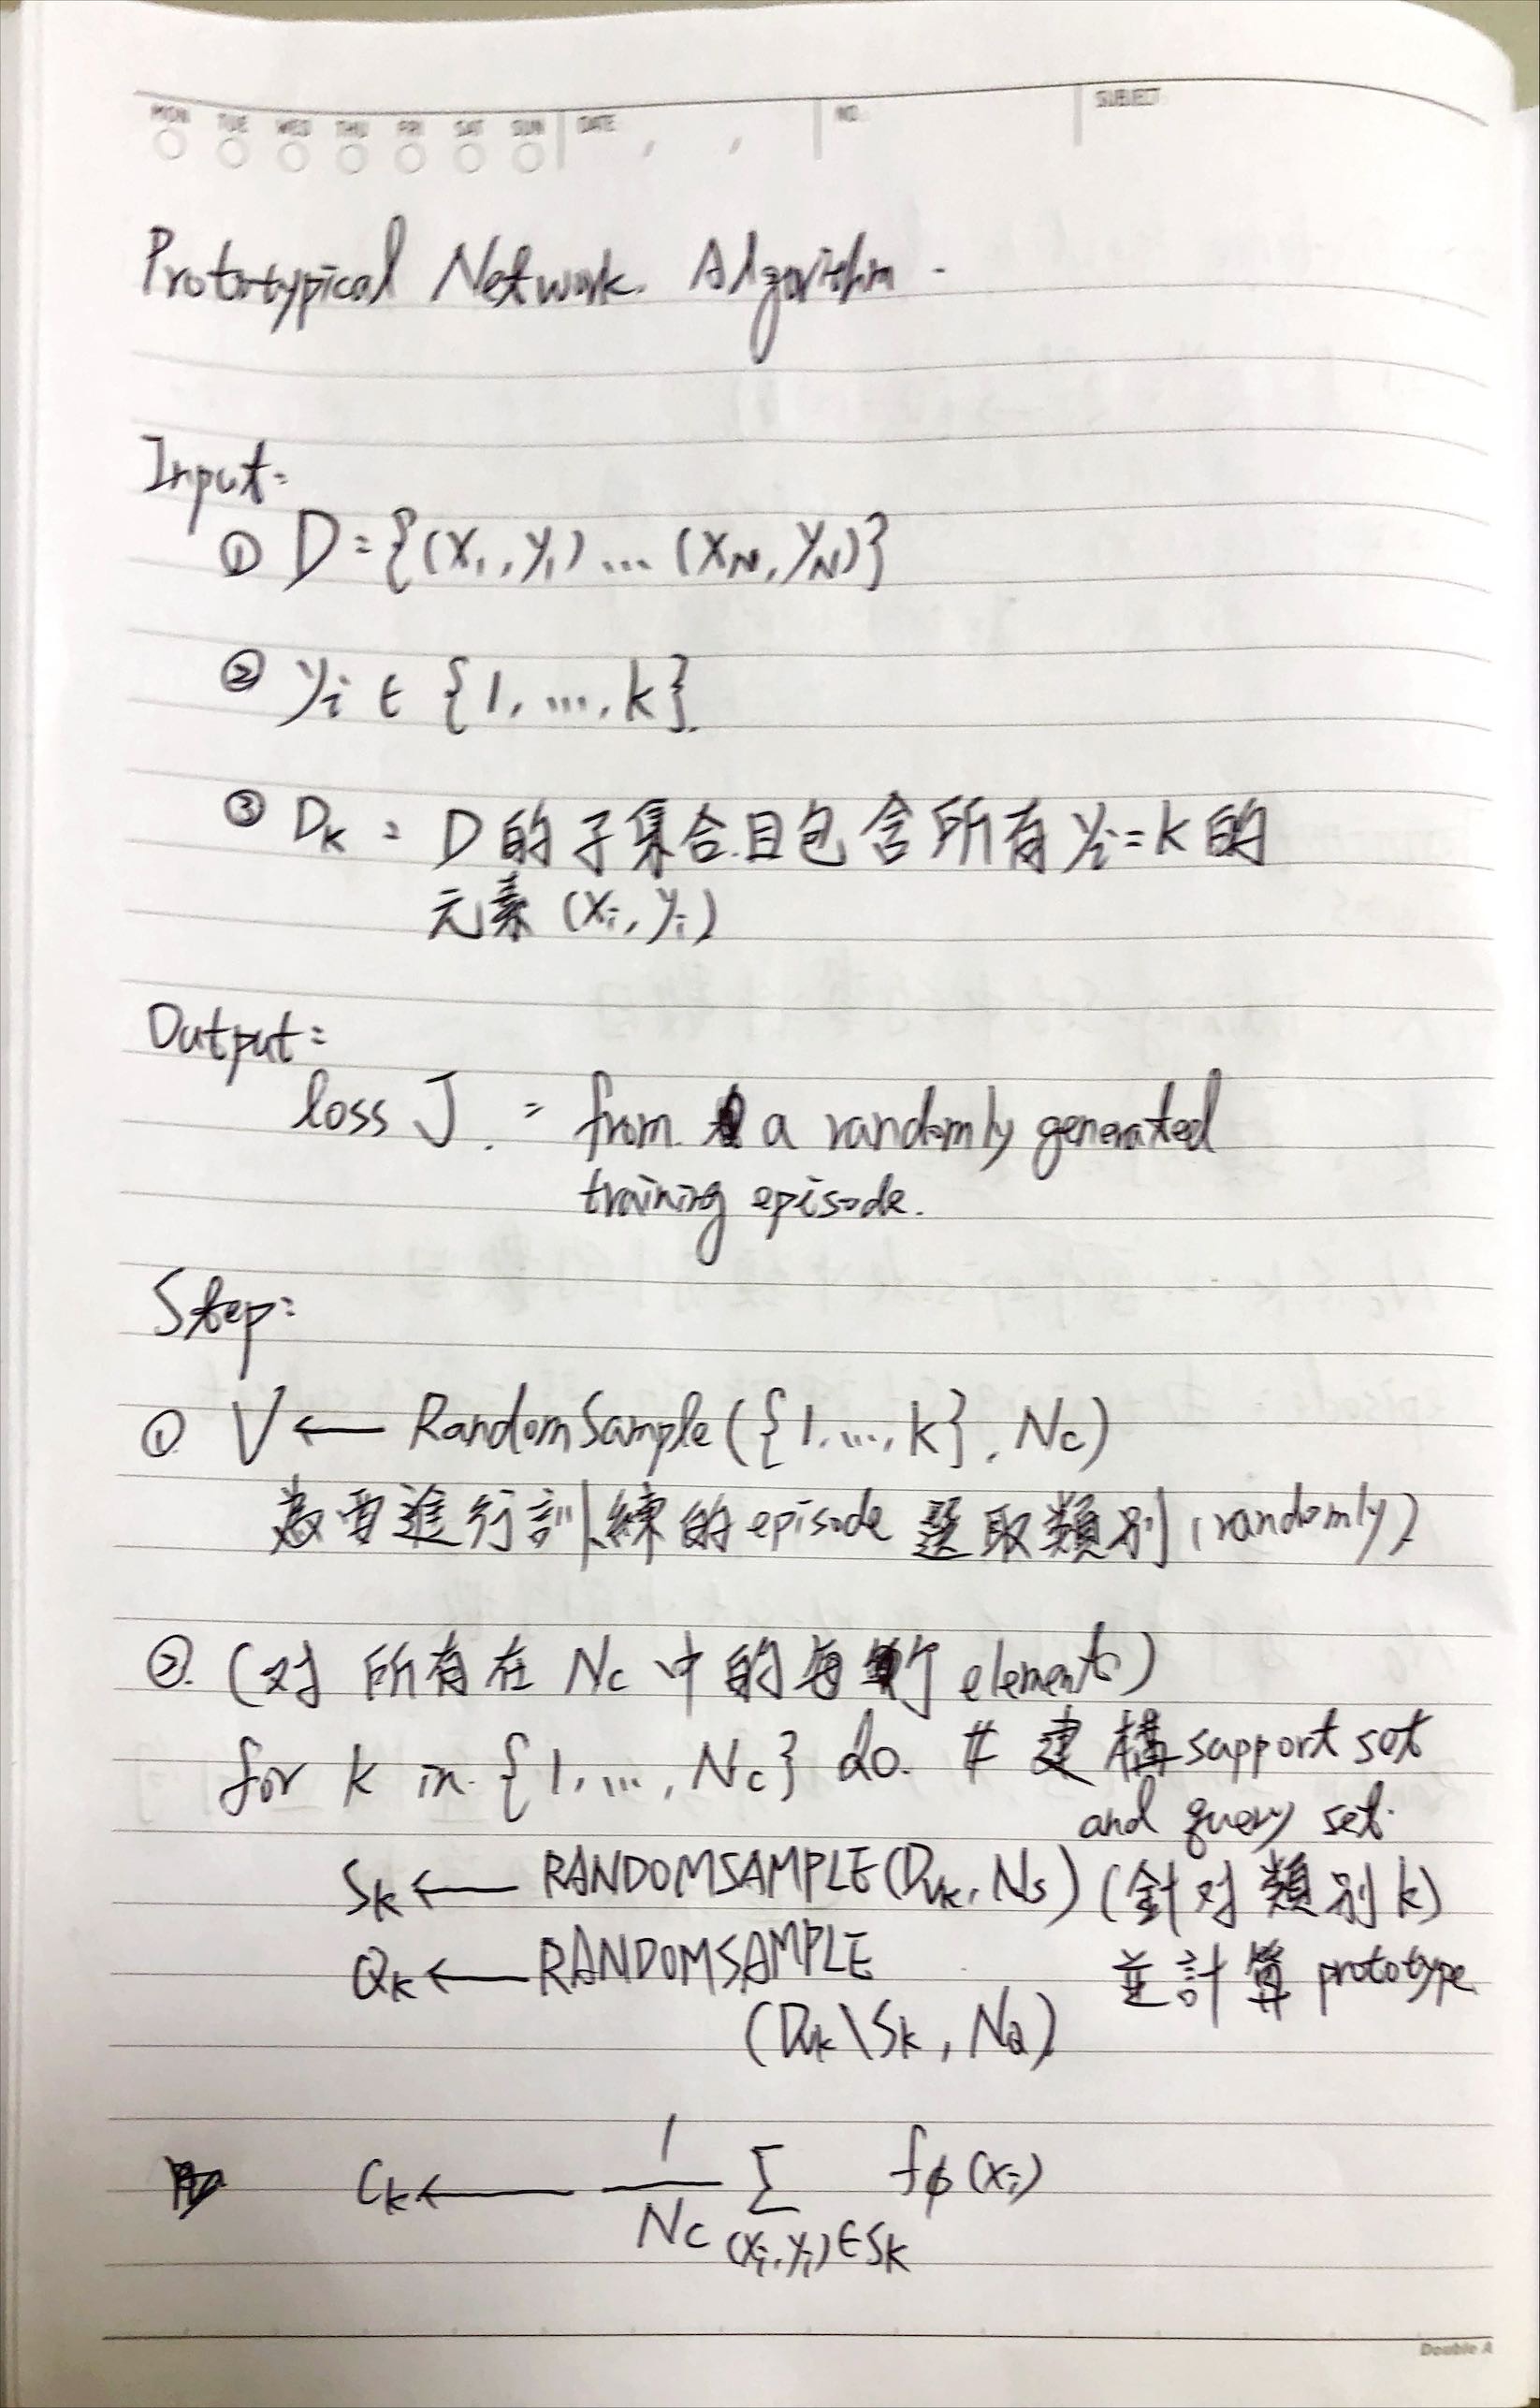 MON TUE WED THU FRI SAT SUN DATE , , NO. SUBJECT
Prototypical Network. Algorithm.
Input:
① D = {(x₁, y₁) ... (x_N, y_N)}
② yᵢ ∈ {1, ..., k}.
③ D_k : D 的子集合且包含所有 yᵢ = k 的
元素 (xᵢ, yᵢ)
Output:
loss J. : from a randomly generated
training episode.
Step:
① V ← RandomSample({1, ..., k}, N_c)
為要進行訓練的 episode 選取類別 (randomly)
②. (对所有在 N_c 中的每個 elements)
for k in {1, ..., N_c} do. # 建構 support set
and query set.
S_k ← RANDOMSAMPLE(D_vk, N_s) (針对類別 k)
Q_k ← RANDOMSAMPLE 並計算 prototype
(D_vk \ S_k, N_Q)
C_k ← 1/N_c Σ_(xᵢ, yᵢ)∈S_k f_φ(xᵢ)
Double A